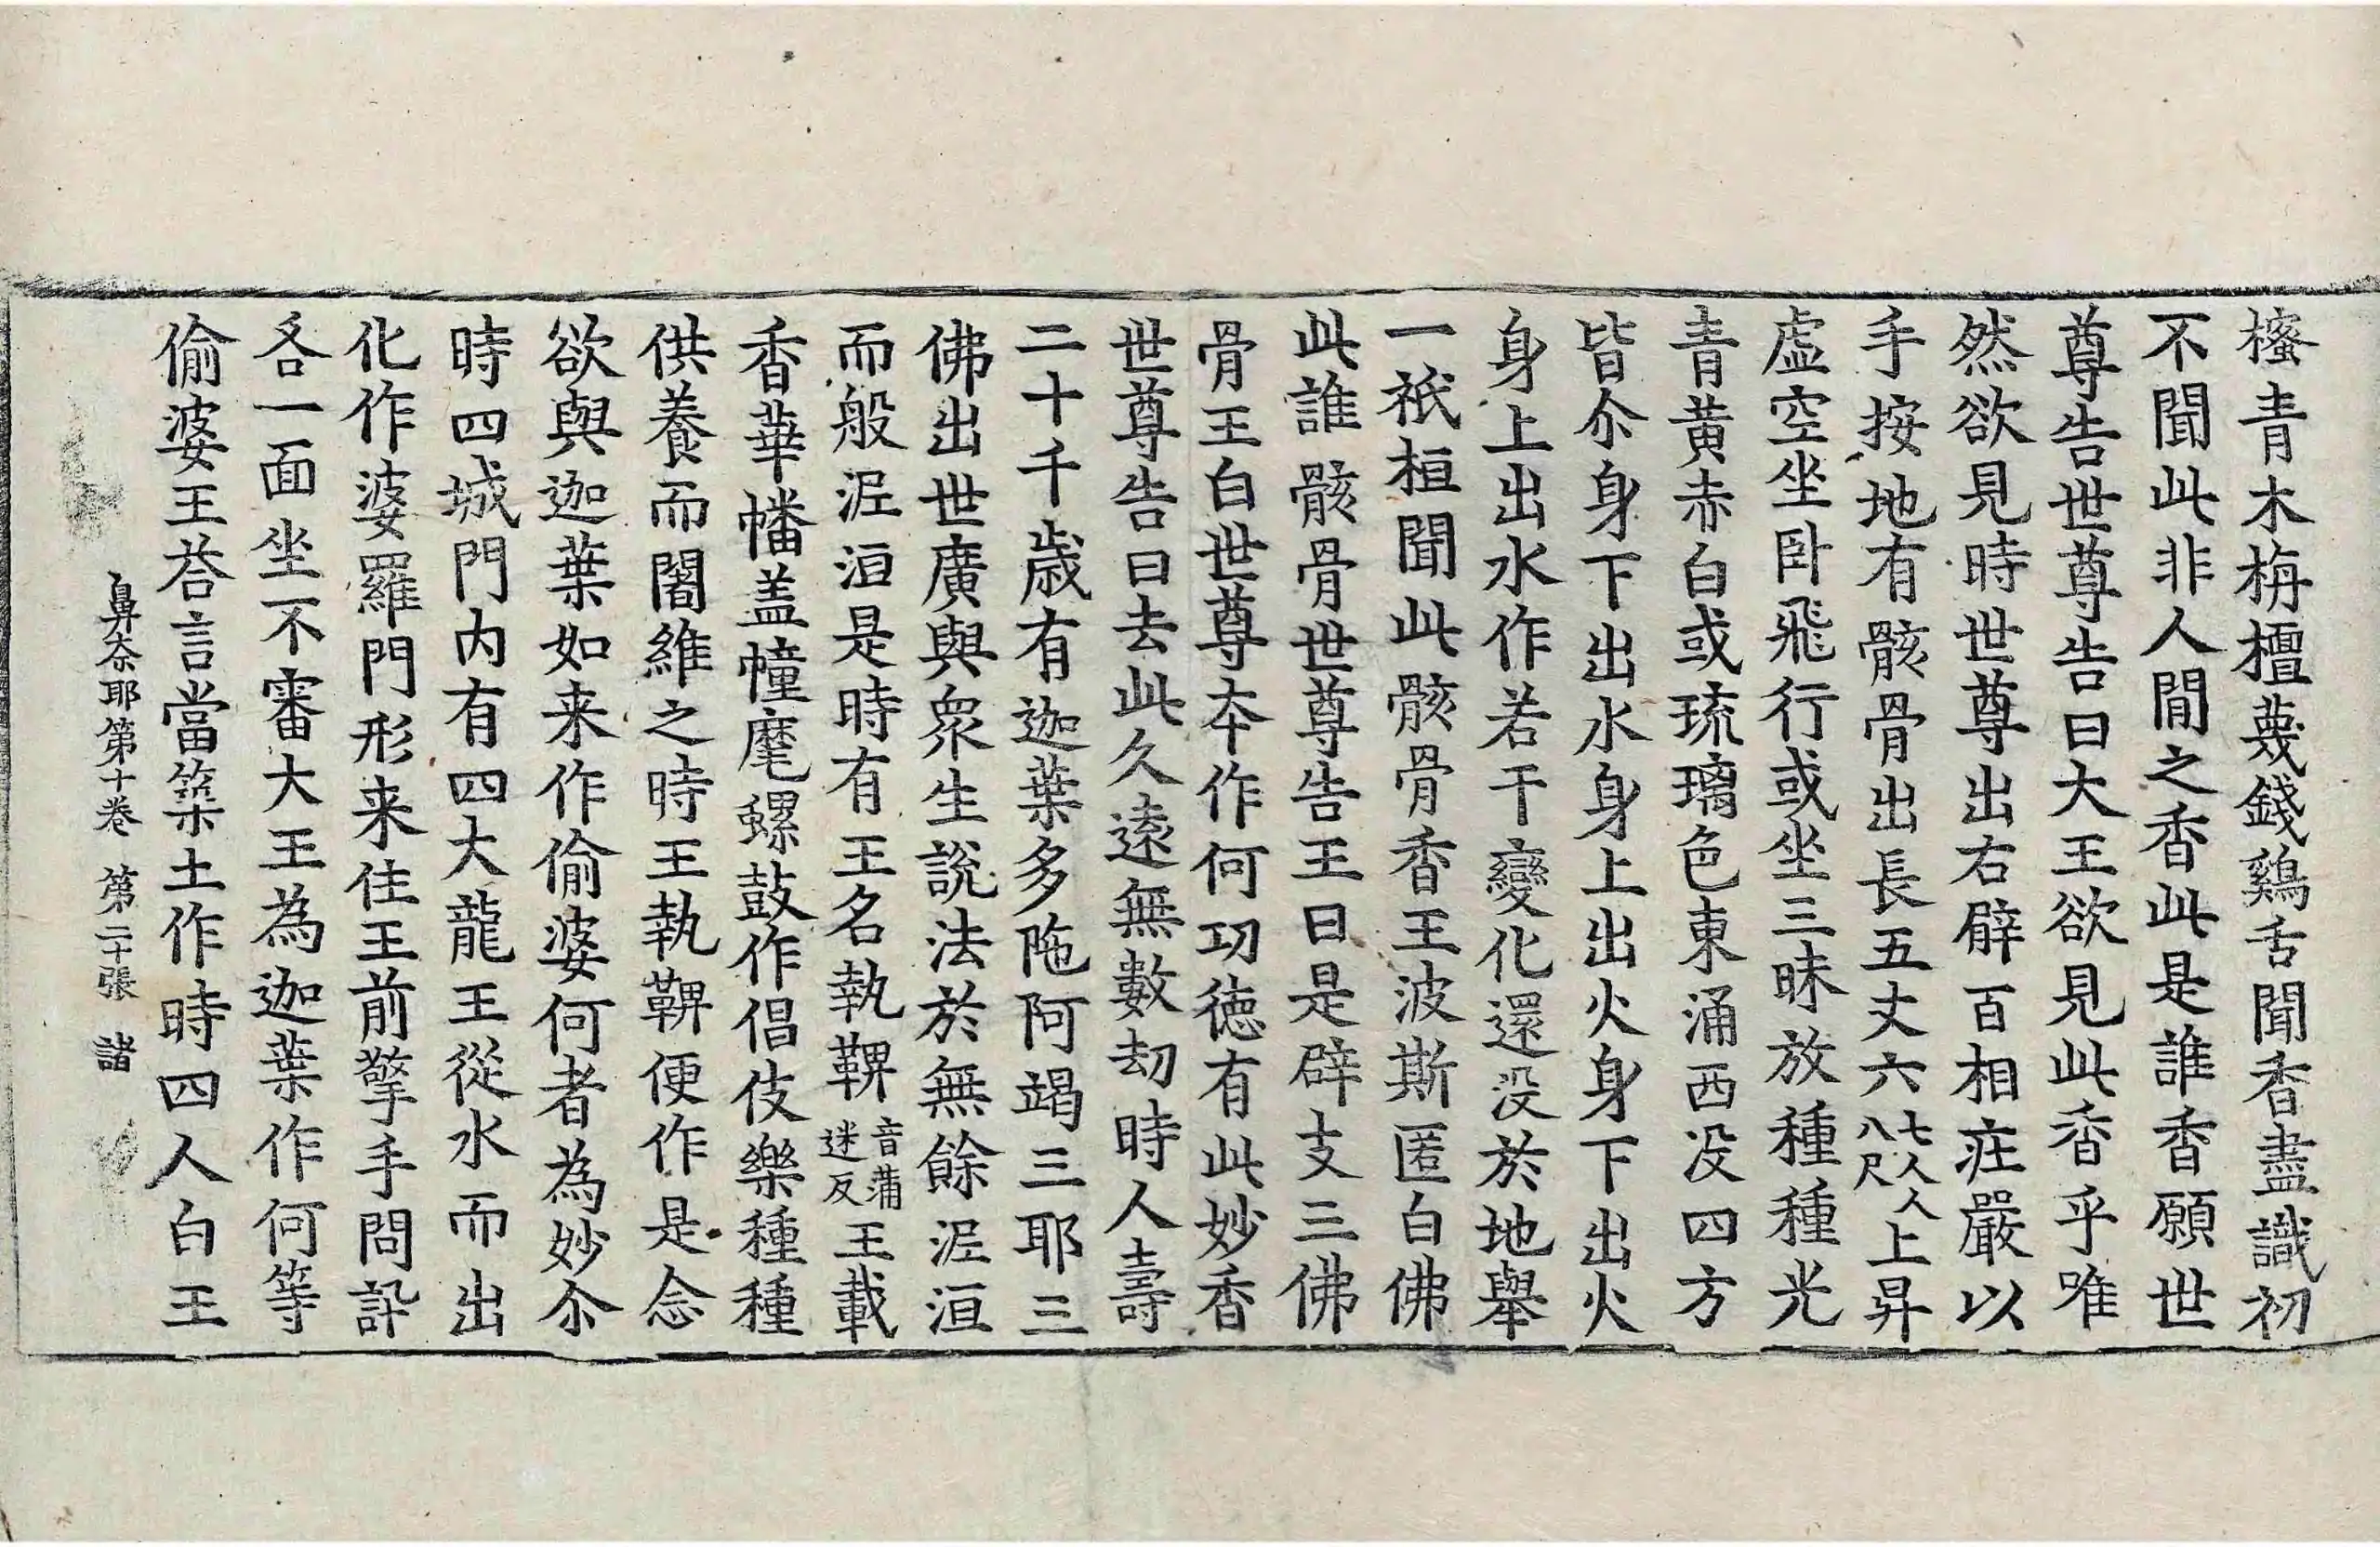 櫁青木栴檀薎錢鷄舌聞香盡識初
不聞此非人閒之香此是誰香願世
尊告世尊告曰大王欲見此香乎唯
然欲見時世尊出右臂百相庄嚴以
手按地有骸骨出長五丈六七人人八尺上昇
虛空坐卧飛行或坐三昧放種種光
青黃赤白或琉璃色東涌西没四方
皆尒身下出水身上出火身下出火
身上出水作若干變化還没於地舉
一祇桓聞此骸骨香王波斯匿白佛
此誰骸骨世尊告王曰是辟支三佛
骨王白世尊本作何功德有此妙香
世尊告曰去此久遠無數劫時人壽
二十千歲有迦葉多陁阿竭三耶三
佛出世廣與衆生說法於無餘泥洹
而般泥洹是時有王名執鞞音蒲迷反王載
香華幡盖幢麾螺鼓作倡伎樂種種
供養而闍維之時王執鞞便作是念
欲與迦葉如来作偷婆何者為妙尒
時四城門内有四大龍王從水而出
化作婆羅門形来住王前擎手問訊
各一面坐不審大王為迦葉作何等
偷婆王荅言當築土作時四人白王
鼻奈耶第十卷　第二十張　諸